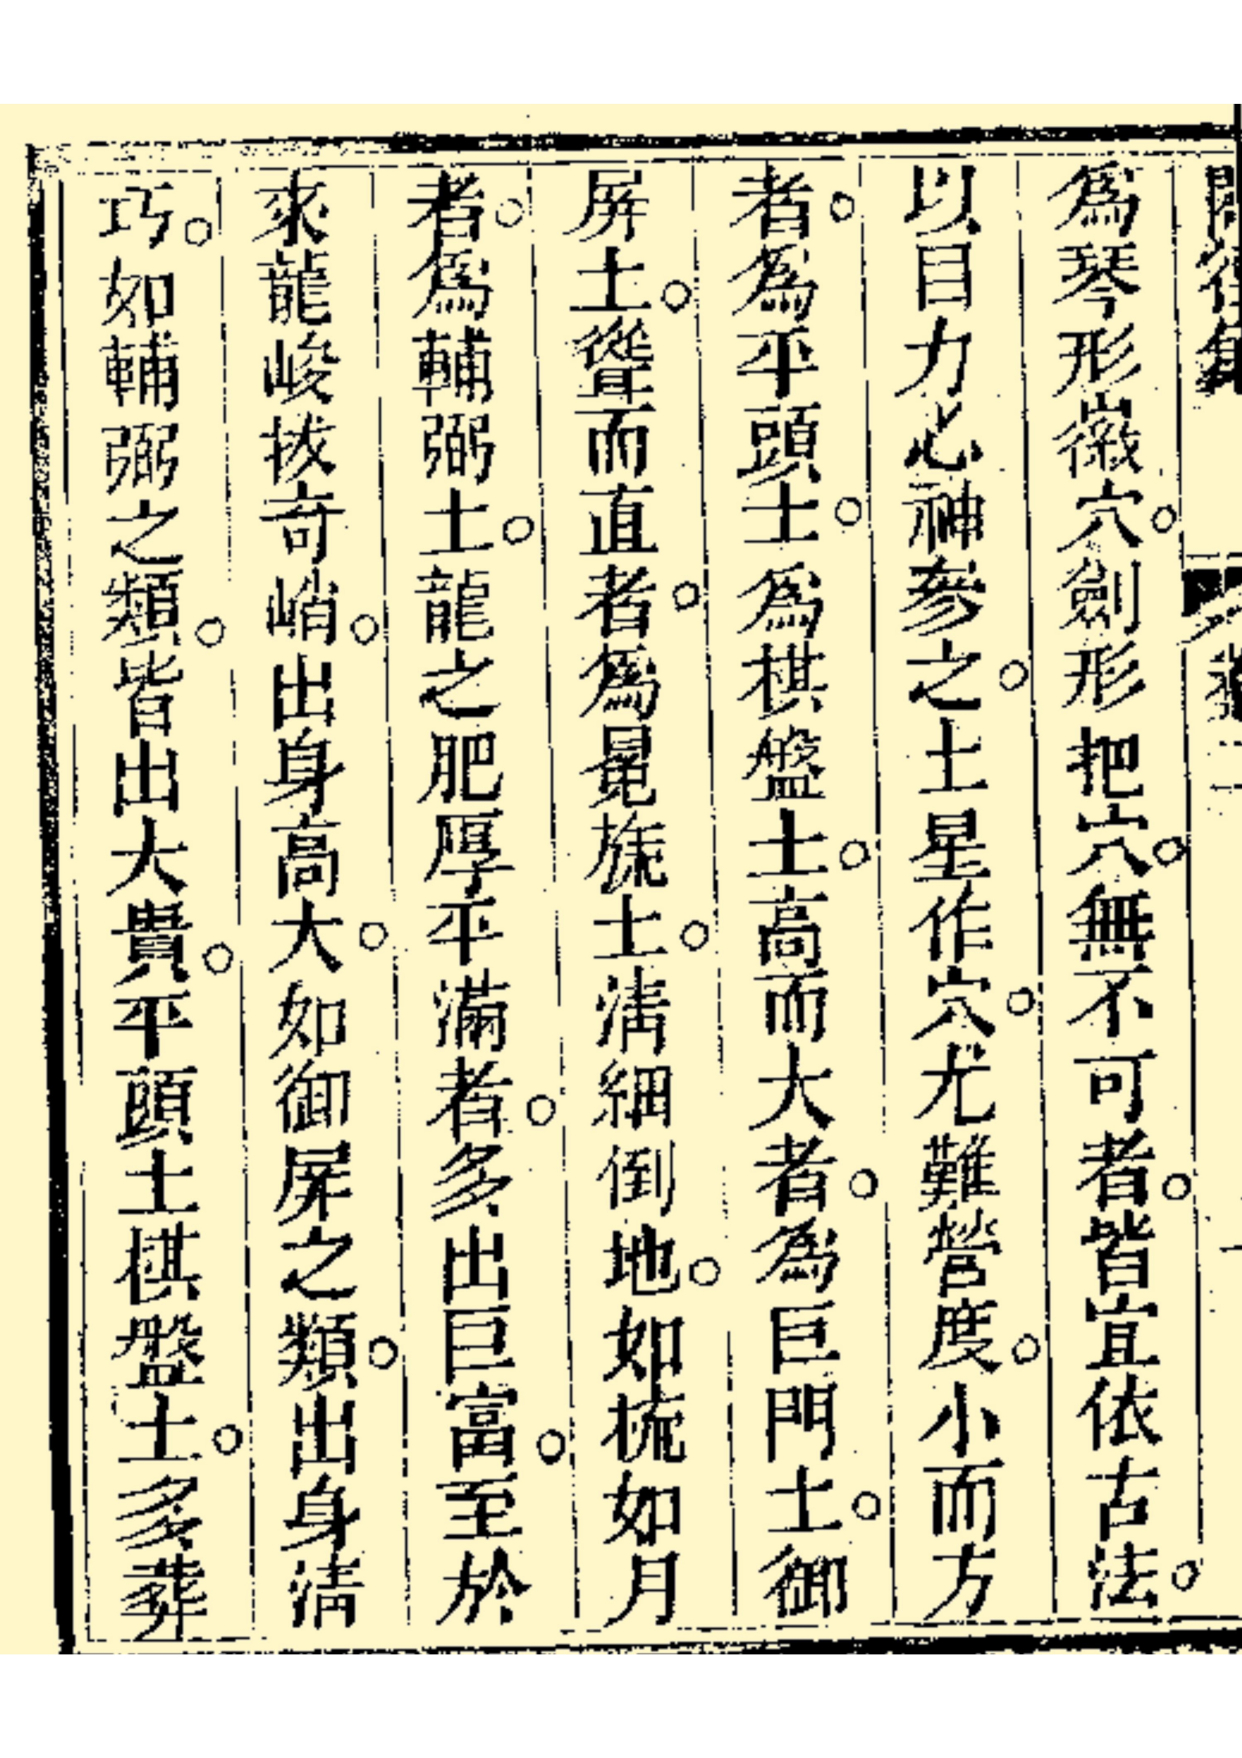 爲琴形徽穴。劍形把穴。無不可者。皆宜依古法。
以目力心神參之。土星作穴。尤難營度。小而方
者。爲平頭土。爲棋盤土。高而大者。爲巨門土。御
屏土。聳而直者。爲冕旒土。清細倒地。如梳如月
者。爲輔弼土。龍之肥厚平滿者。多出巨富。至於
來龍峻拔奇峭。出身高大。如御屏之類。出身清
巧。如輔弼之類。皆出大貴。平頭土棋盤土。多葬